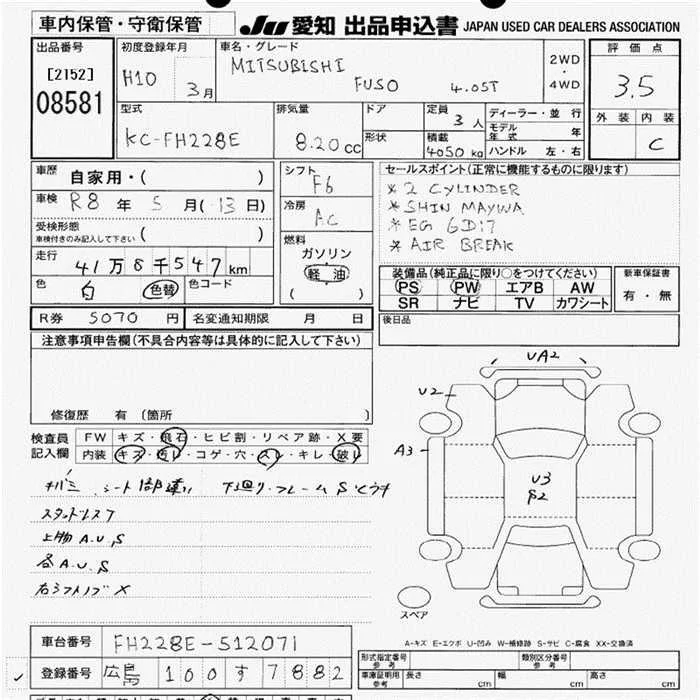 車内保管・守衛保管
JU 愛知 出品申込書 JAPAN USED CAR DEALERS ASSOCIATION
出品番号
[2152]
08581
初度登録年月
H10 3月
車名・グレード
MITSUBISHI
FUSO 4.05T
2WD
・
4WD
評価点
3.5
外装 内装
C
型式
KC-FH228E
排気量
8.20 cc
ドア
形状
定員
3 人
積載
4050 kg
ディーラー・並 行
モデル年式 年
ハンドル 左・右
車歴
自家用・( )
車検 R8 年 5 月(13日)
受検形態
車検付きのみ記入して下さい ( )
走行
41万8千547km
色 白 色替 色コード
シフト
F6
冷房
AC
燃料
ガソリン
軽・油
( )
セールスポイント(正常に機能するものに限ります)
* 2 CYLINDER
* SHIN MAYWA
* EG 6D17
* AIR BREAK
装備品(純正品に限り○をつけてください)
PS PW エアB AW
SR ナビ TV カワシート
新車保証書
有・無
R券 5070 円 名変通知期限 月 日
後日品
注意事項申告欄(不具合内容等は具体的に記入して下さい)
修復歴 有 (箇所 )
検査員
記入欄
FW キズ・飛石・ヒビ割・リペア跡・X要
内装 キズ・汚レ・コゲ・穴・スレ・キレ・破レ
シート
下廻り・フレーム S
スタットレス7
上物 A.U.S
各 A.U.S
X
UA2
U2
A3
U3
S2
スペア
A-キズ E-エクボ U-凹み W-補修跡 S-サビ C-腐食 XX-交換済
車台番号 FH228E-512071
登録番号 広島 100 す 7882
型式指定番号
参考
類別区分番号
参考
車庫証明用
参考
長さ cm 幅 cm 高さ cm